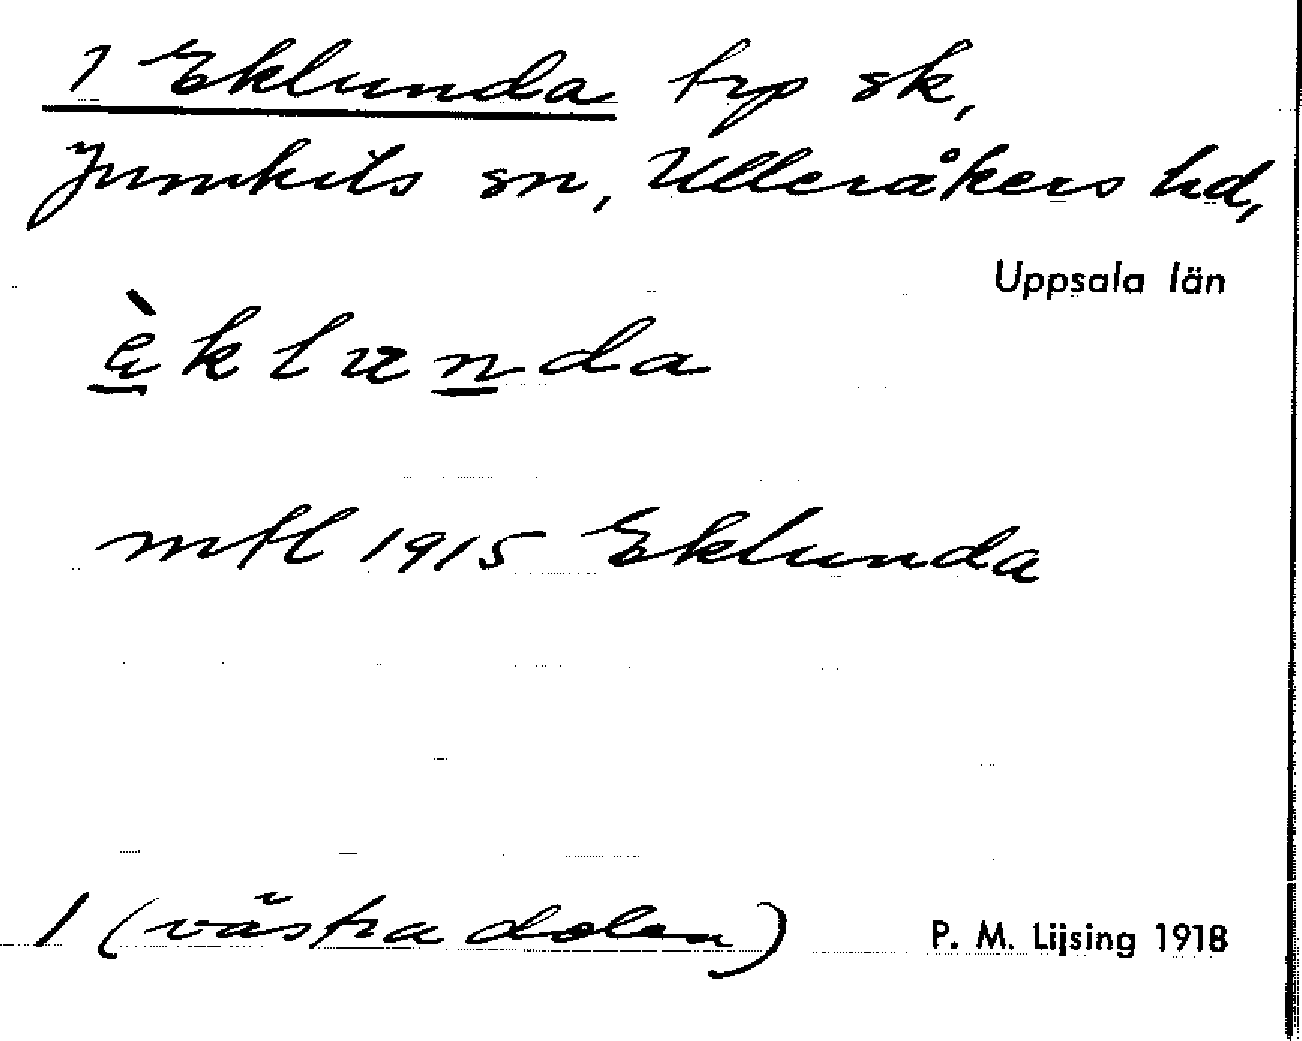 1 Eklunda trp sk,
Jumkils sn, Ulleråkers hd,
Uppsala län
èklunda
mtl 1915 Eklunda
1 (västra delen)
P. M. Lijsing 1918